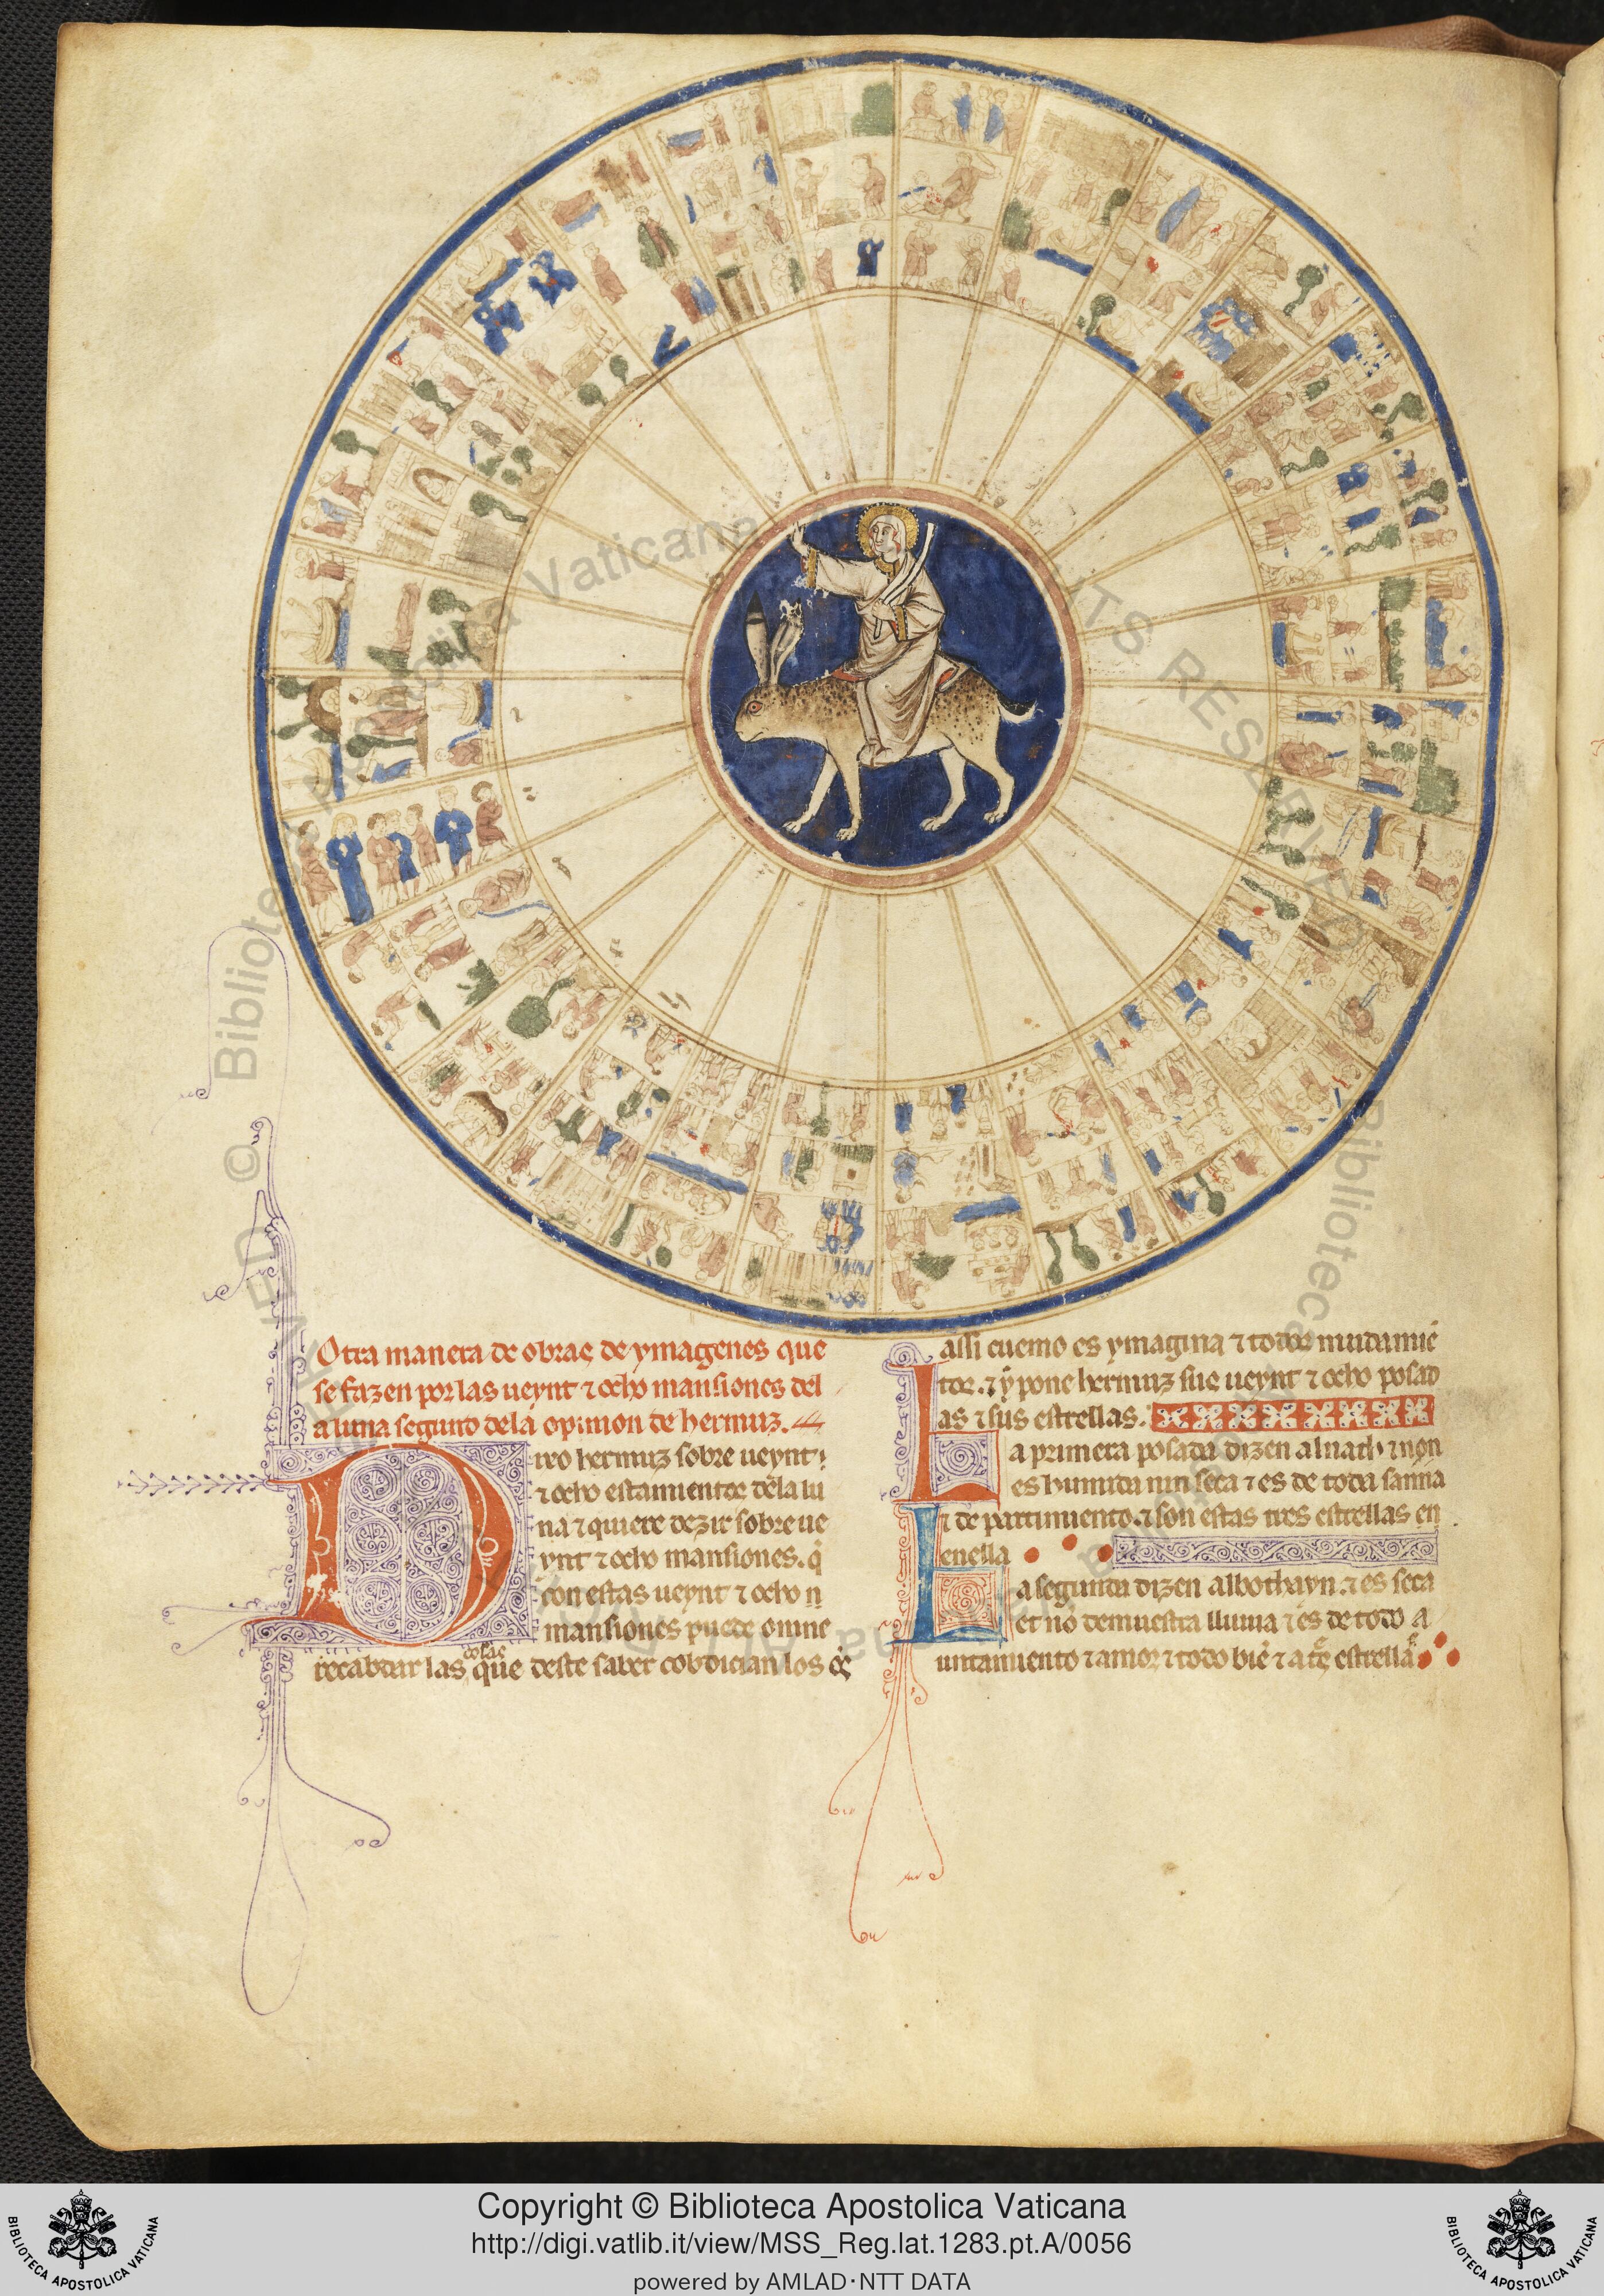 Otra manera de obras de ymagenes que
se fazen por las ueynt ⁊ ocho mansiones del
a luna segund dela opinion de hermuz.
Dixo hermuz sobre ueynt
⁊ ocho estamientos dela lu
na ⁊ quiere dezir sobre ue
ynt ⁊ ocho mansiones. q̇
con estas ueynt ⁊ ocho
mansiones puede omne
recabdar las cosas que deste saber cobdician los
assi cuemo es ymagina ⁊ todos mudamiē
tos. ⁊ ẏ pone hermuz sus ueynt ⁊ ocho posad
as ⁊ sus estrellas.
La primera posada dizen alnath ⁊ non
es humida nin seca ⁊ es de toda sanna
⁊ de partimiento. ⁊ son estas tres estrellas en
enella
La segunda dizen albothayn. ⁊ es seca
et nō demuestra lluuia ⁊ es de todo a
untamiento ⁊ amor ⁊ todo biē ⁊ estrella
© Biblioteca Apostolica Vaticana
RIGHTS RESERVED
© Biblioteca
Copyright © Biblioteca Apostolica Vaticana
http://digi.vatlib.it/view/MSS_Reg.lat.1283.pt.A/0056
powered by AMLAD·NTT DATA
BIBLIOTECA APOSTOLICA VATICANA
BIBLIOTECA APOSTOLICA VATICANA